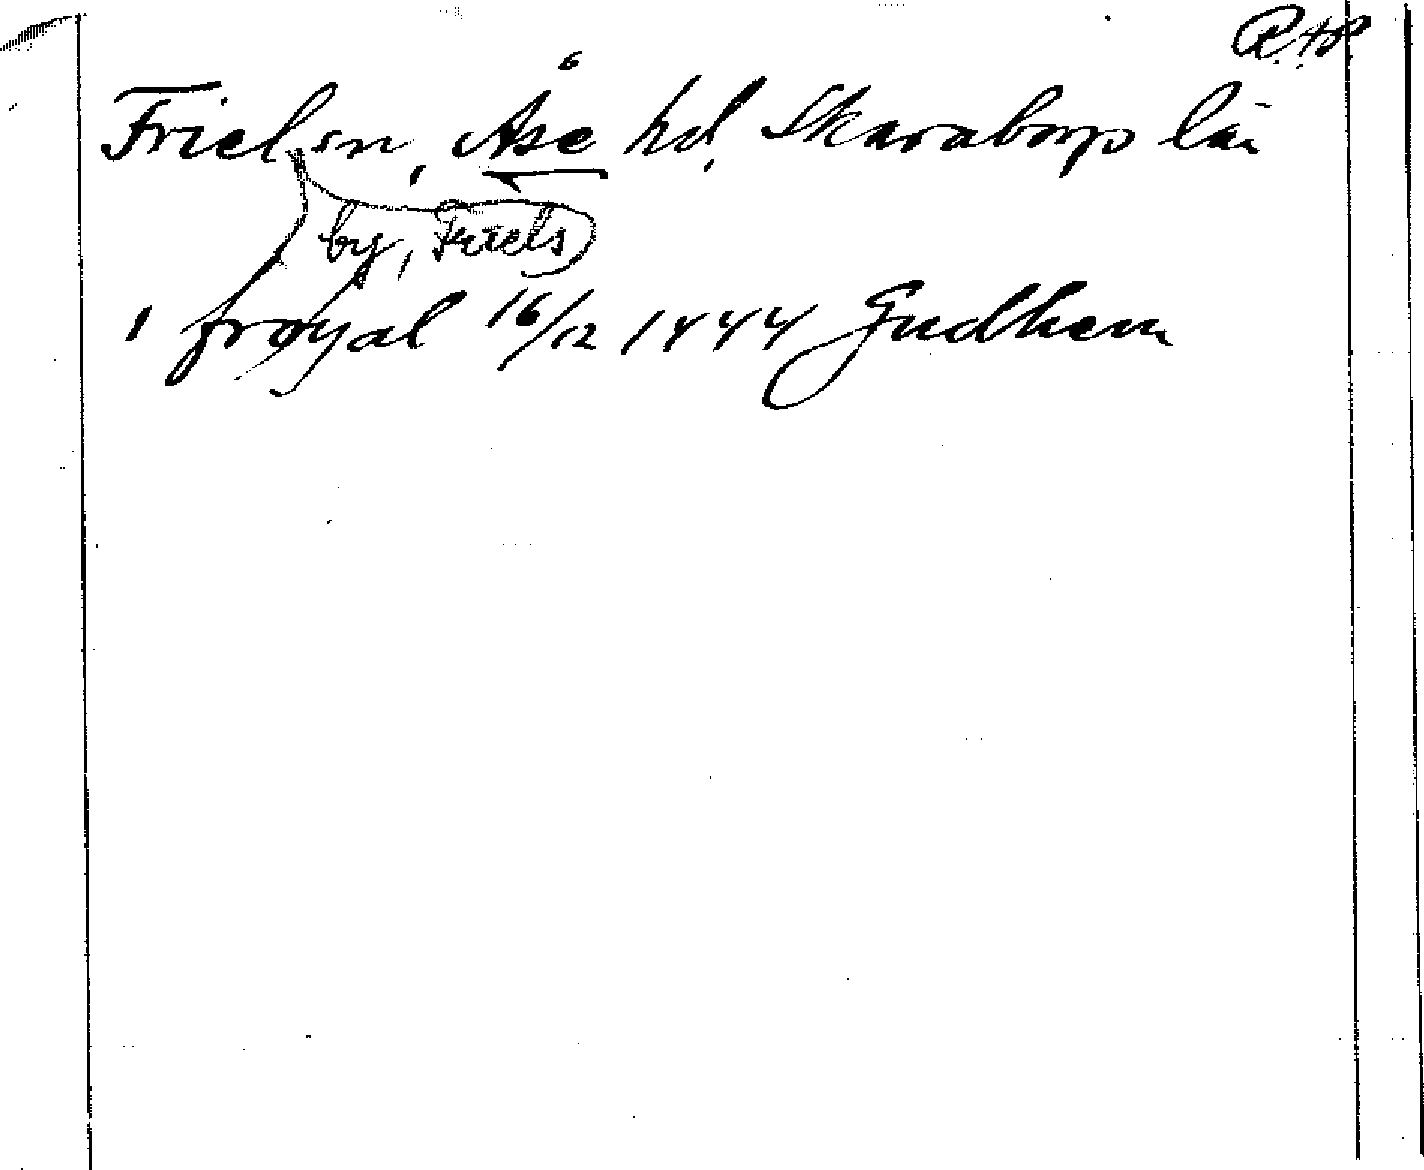 RAP.
Friel sn, Åse hd, Skaraborgs län
by, Friels
i frøyal 16/12 1444 Gudhem